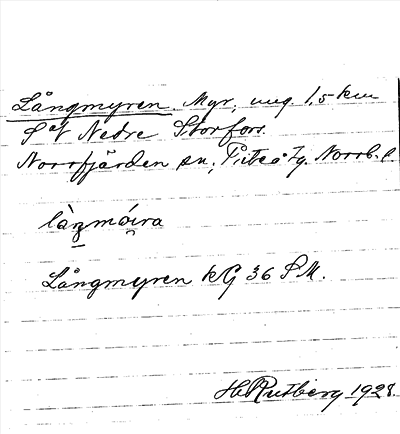 Långmyren. Myr, ung. 1,5 km
S et Nedre Storfors.
Norrfjärden sn, Piteå tg. Norrb. l.
Långmyren kG 36 SM.
H. Rutberg 1928.